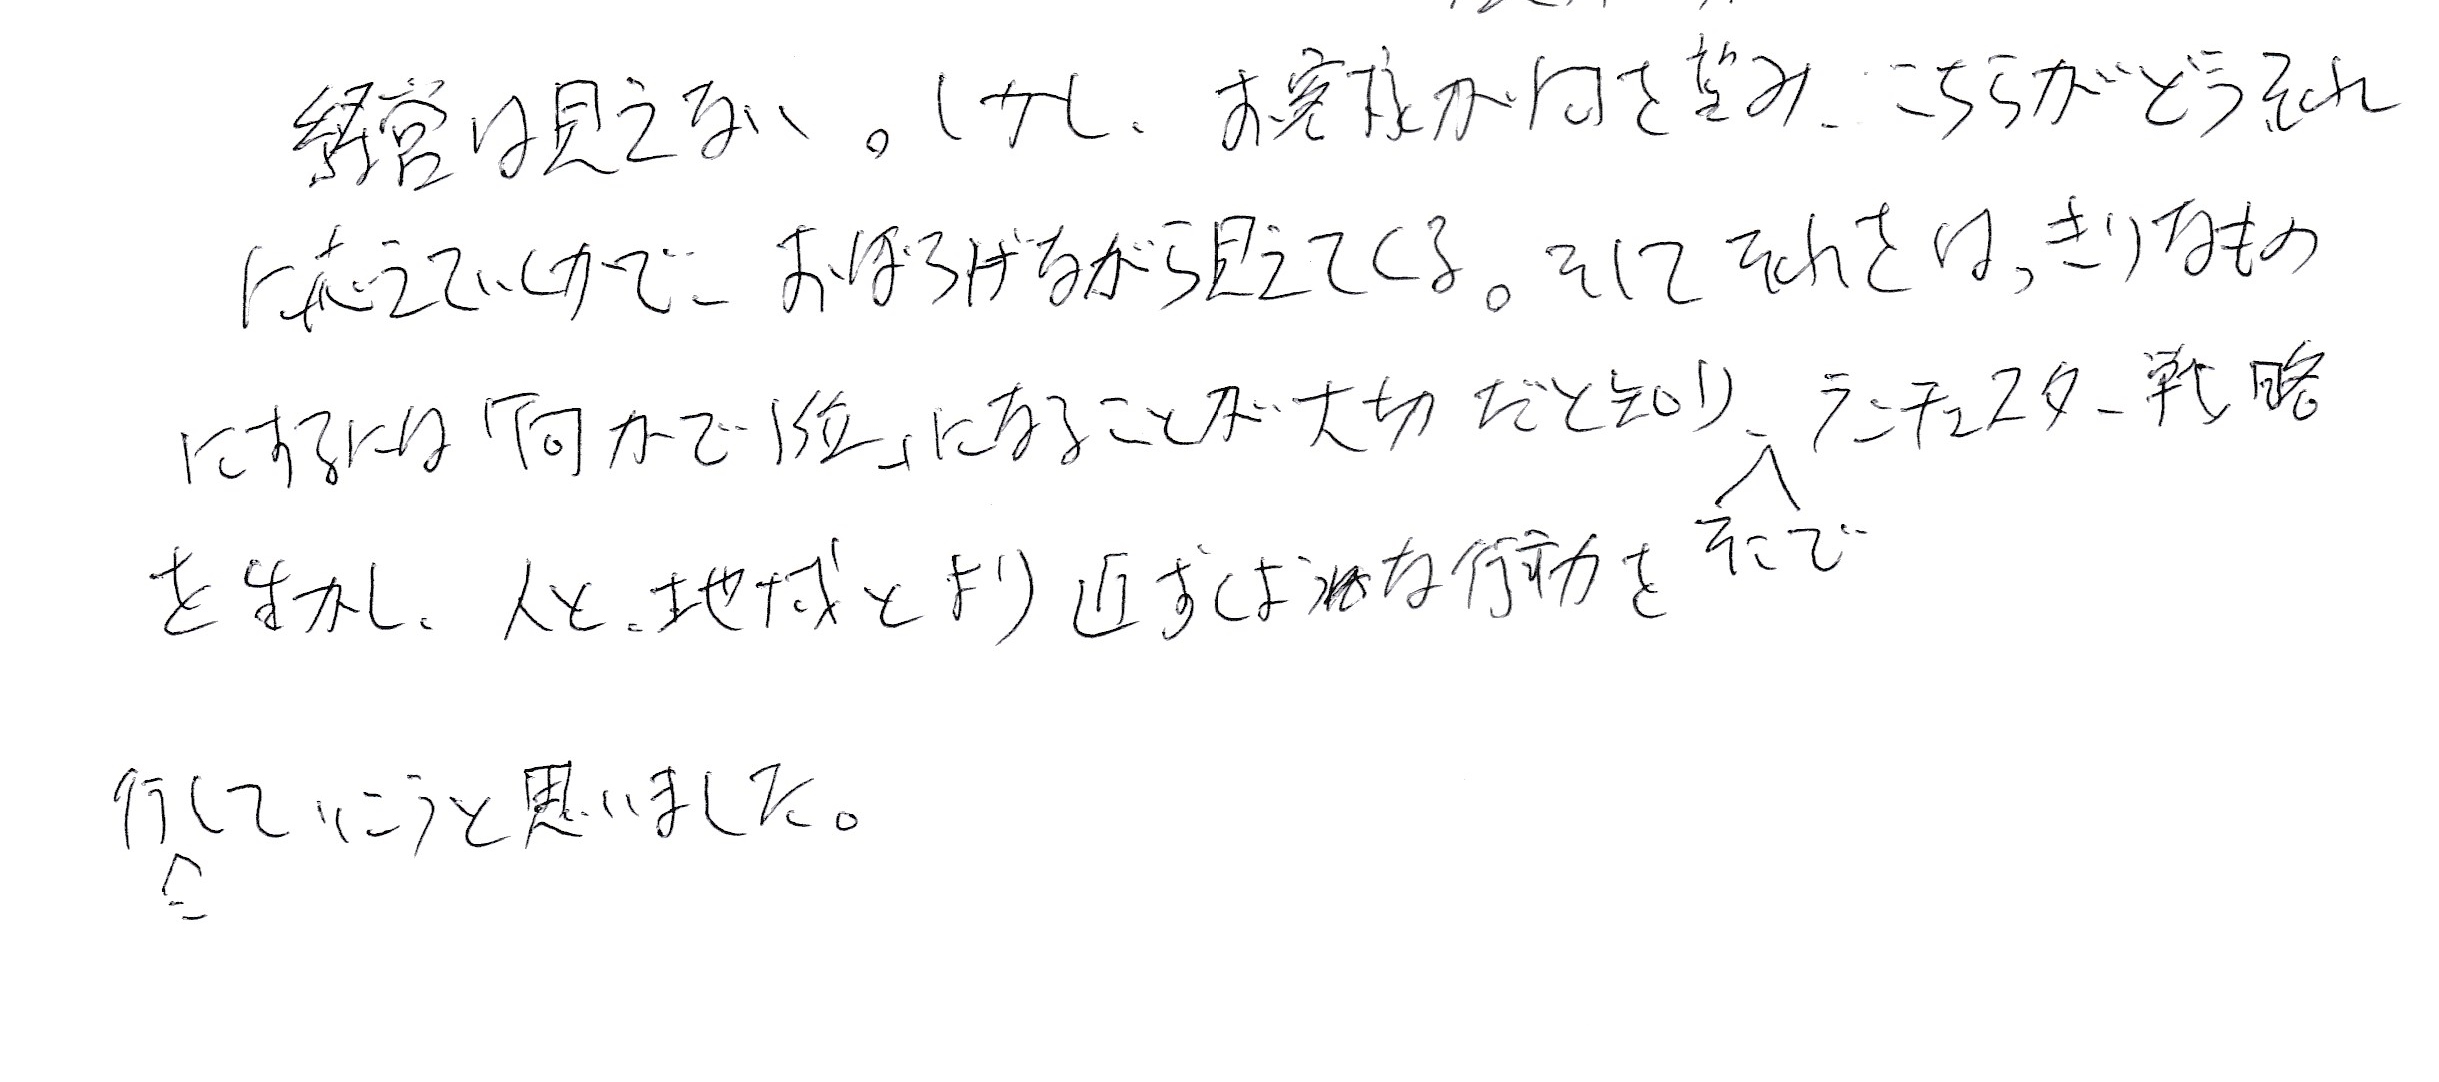 経営は見えない。しかし、お客様が何を望み、こちらがどうそれ
に応えていくかで、おぼろげながら見えてくる。そしてそれをはっきりなもの
にするには「何かで1位」になることが大切だと知り、ランチェスター戦略
そこで
を生かし、人と、地域とより近ずくような行動を
行していこうと思いました。